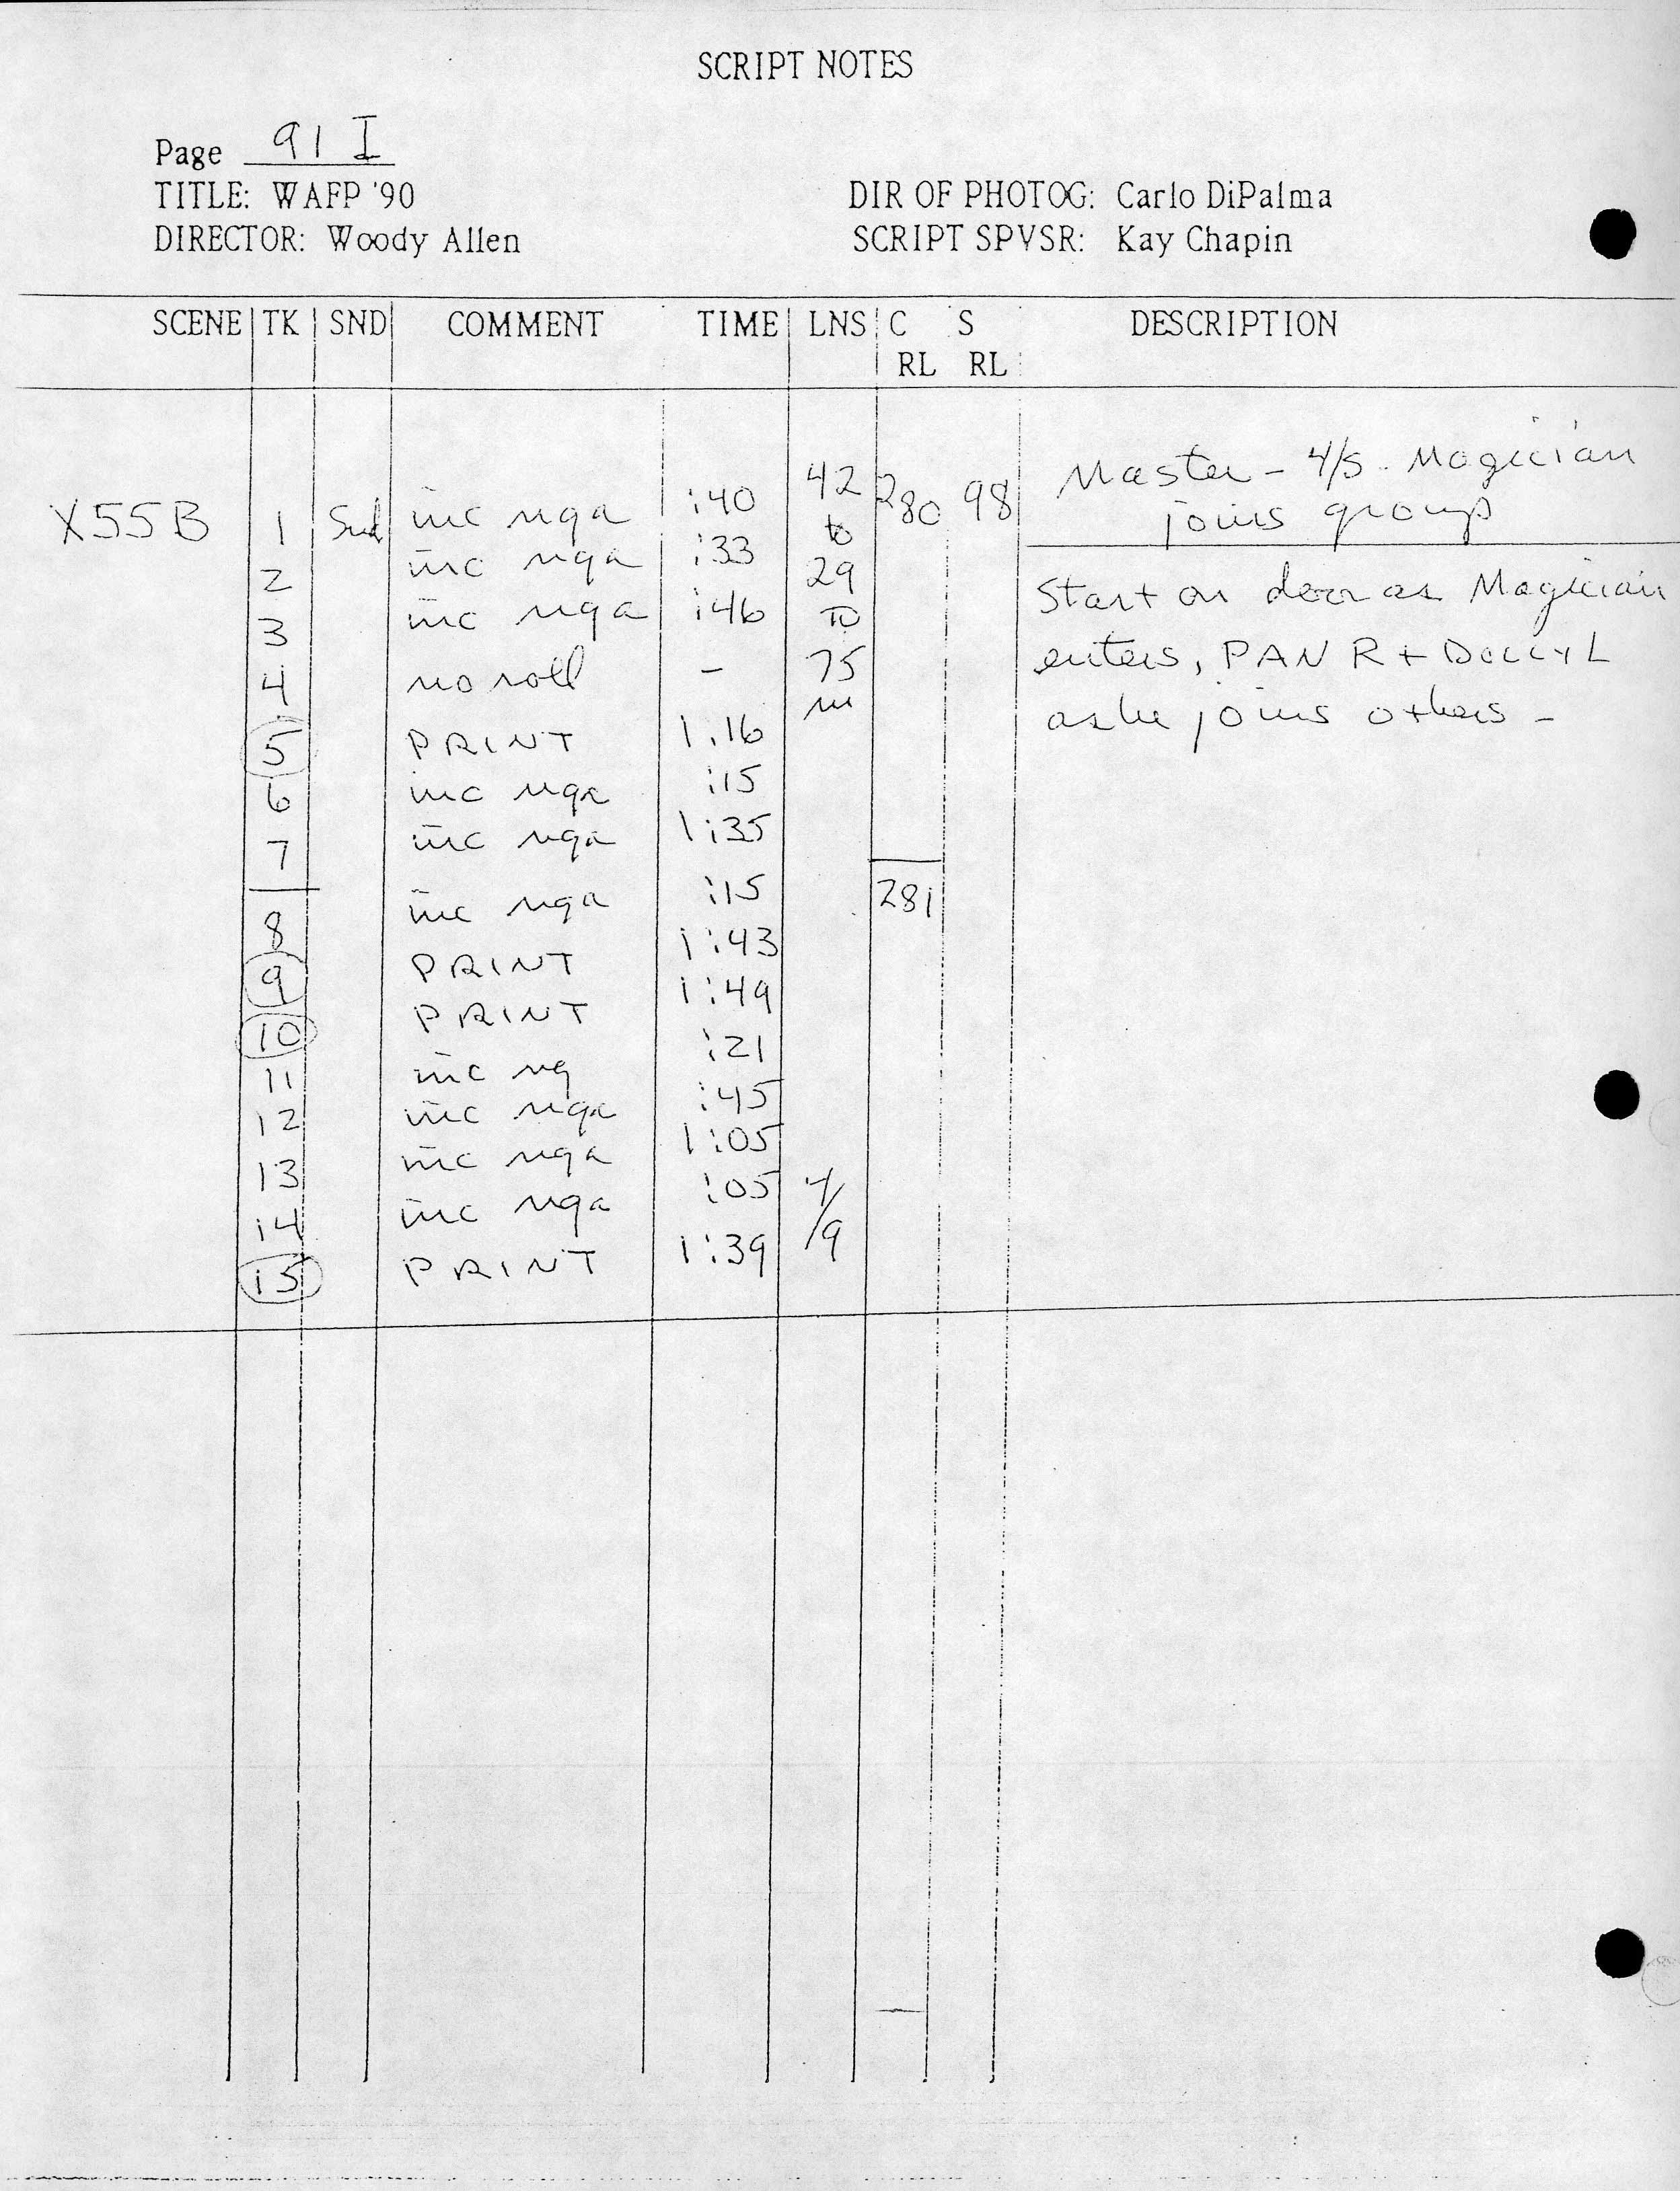 SCRIPT NOTES
Page 91 I
TITLE: WAFP '90
DIR OF PHOTOG: Carlo DiPalma
DIRECTOR: Woody Allen
SCRIPT SPVSR: Kay Chapin
SCENE TK SND COMMENT TIME LNS C RL S RL DESCRIPTION
X55B 1 Snd inc nga :40 42 280 98 Master - 4/s. Magician
to joins group
2 inc nga :33 29 Start on door as Magician
3 inc nga :46 TO enters, PAN R + DOLLY L
4 no roll – 75 as he joins others –
m
5 PRINT 1.16
6 inc nga :15
7 inc nga 1:35
8 inc nga :15 281
9 PRINT 1:43
10 PRINT 1:49
11 inc ng :21
12 inc nga :45
13 inc nga 1:05
14 inc nga :05 4/
15 PRINT 1:39 /9